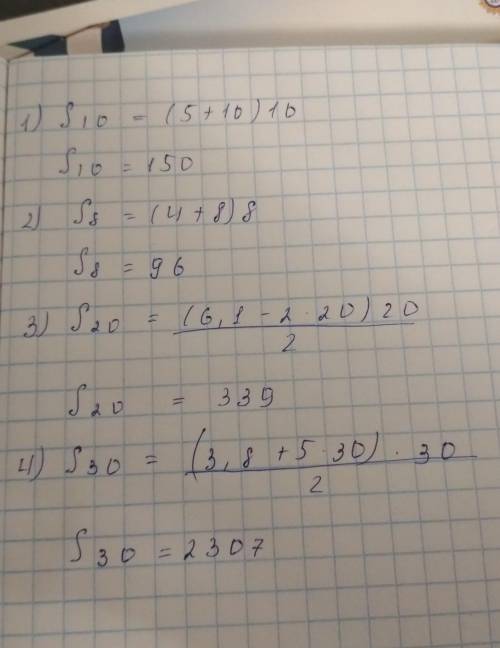 1) S10 = (5+10)10
S10 = 150
2) S8 = (4+8)8
S8 = 96
3) S20 = (6,1 - 2·20)20
2
S20 = 339
4) S30 = (3,8 + 5·30)·30
2
S30 = 2307